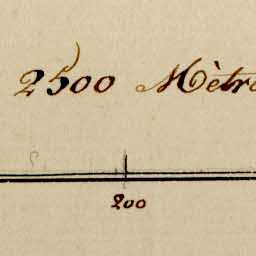 2500 Mètre
200